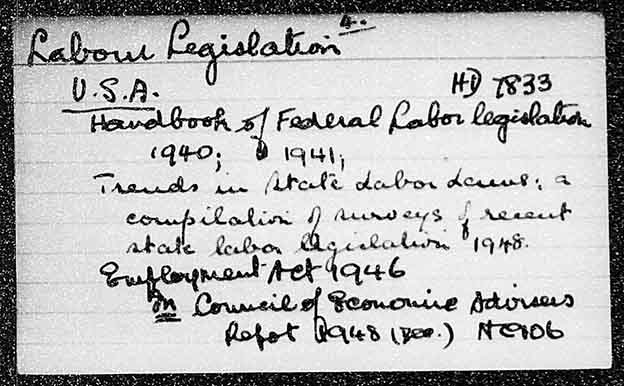 Labour Legislation 4.
U.S.A. HD 7833
Handbook of Federal Labor legislation
1940; 1941;
Trends in State Labor Laws; a
compilation of surveys of recent
state labor legislation 1948.
Employment Act 1946
In Council of Economic Advisers
Repot 1948 (Dec.) HC106